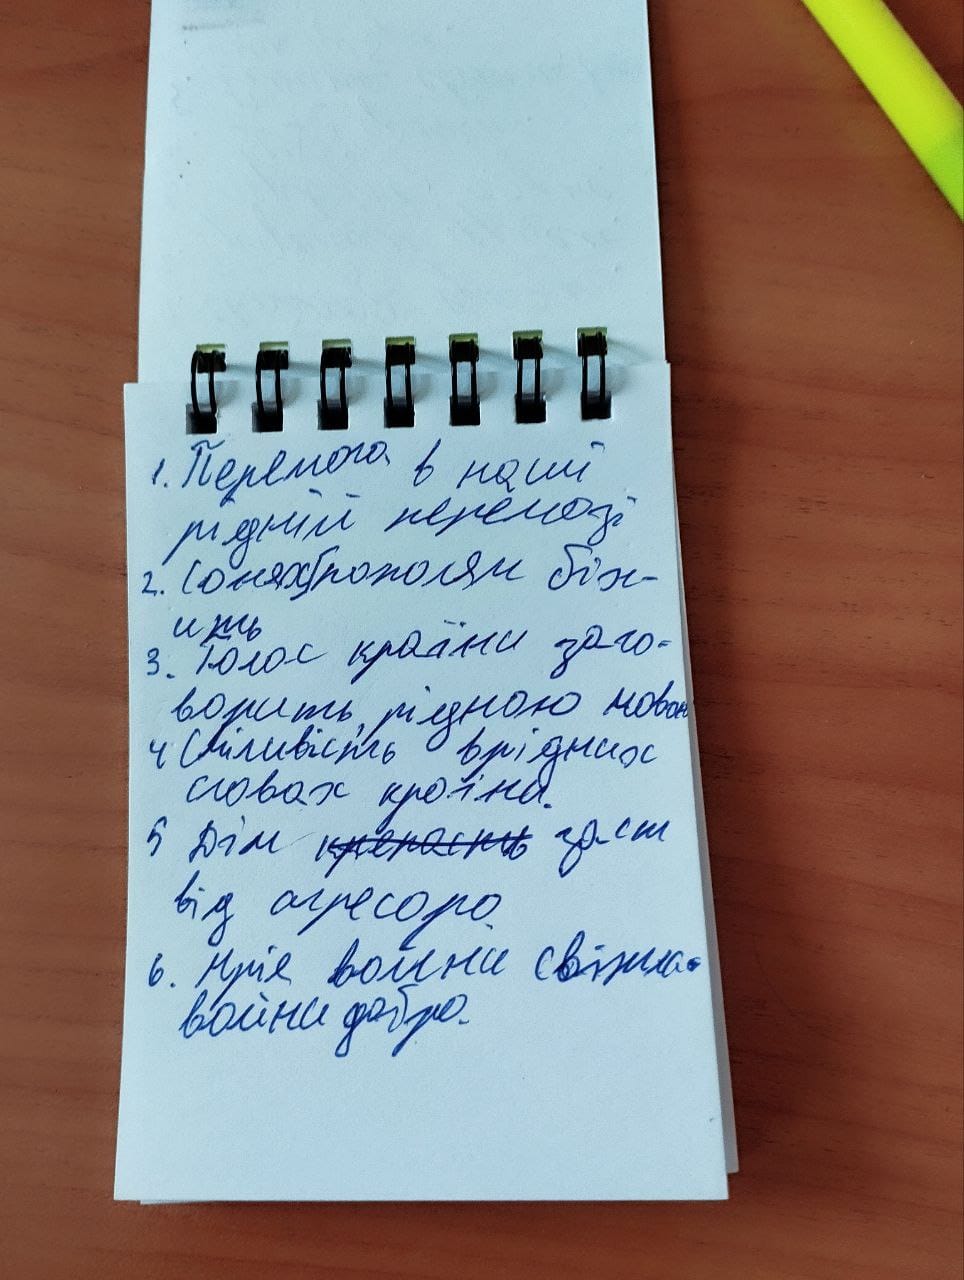 1. Перемога в наші
рідній перемозі
2. Сонях полям біж-
ить
3. Голос країни заго-
ворить рідною мовою
4 Сміливість в рідних
словах країни.
5 Дім захист
від агресора
6. Мрія воїни світла
воїни добра.